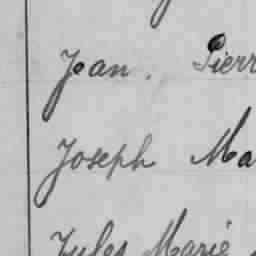 Jean. Pierr
Joseph Ma
Jules Marie